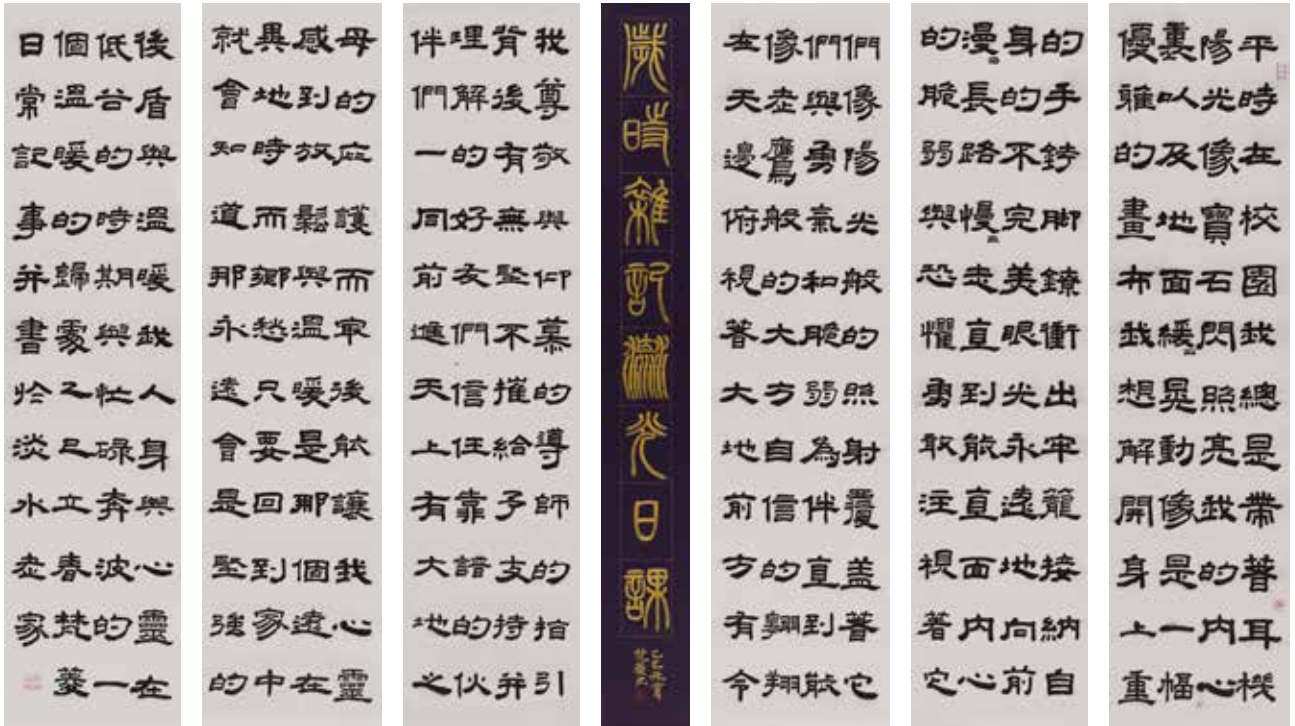 平時在校園我總是帶著耳機
陽光像寶石閃照亮我的內心
裏以及地面緩〻晃動像是一幅
優雅的畫布我想解開身上重
的手銬腳鐐衝出牢籠接納自
身的不完美眼光永遠地向前
漫〻長路慢〻走直到能直面內心
的脆弱與恐懼勇敢注視著它
們像陽光般的照射覆盖著它
們與勇氣和脆弱為伴直到能
像老鷹般的大方自信的翱翔
在天邊俯視著大地前方有令
歲時雜記光日課
乙巳
我尊敬與仰慕的導師的指引
背後有無堅不摧給予支持并
理解的好友們信任靠譜的伙
伴們一同前進天上有大地之
母的庇護而牢後能讓我心靈
感到放鬆與溫暖是那個遠在
異地時而鄉愁只要回到家中
就會知道那永遠會是堅強的
後盾與溫暖我人身與心靈在
低谷的時期與忙碌奔波的一
個溫暖的歸處乙巳立春梵
日常記事并書於淡水老家